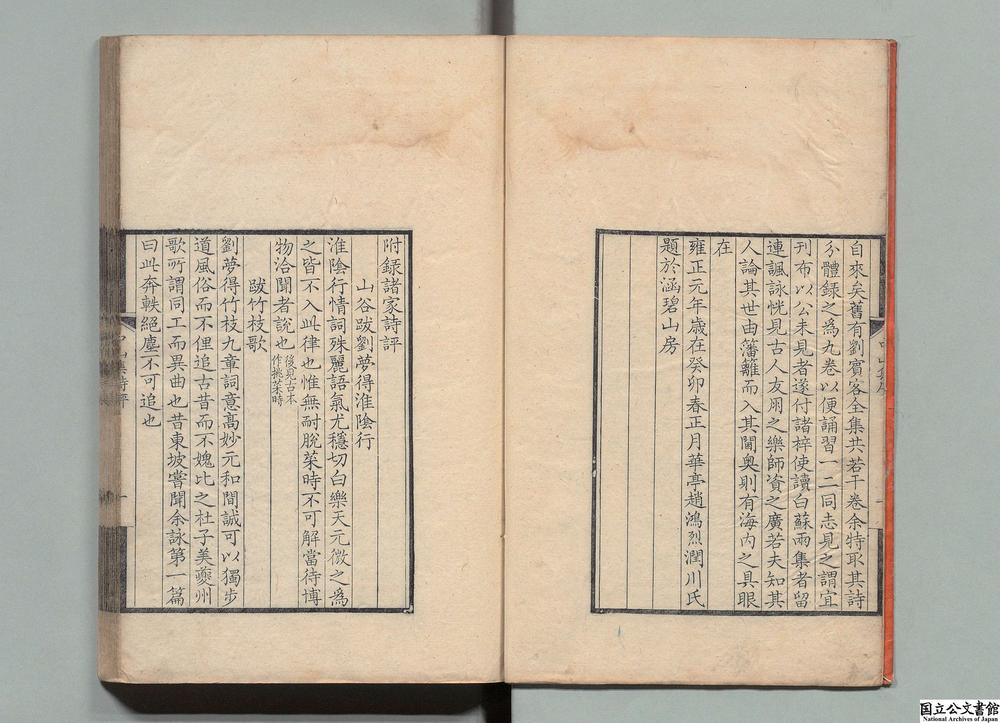 自來矣舊有劉賓客全集共若干卷余特取其詩
分體録之為九卷以便誦習一二同志見之謂宜
刊布以公未見者遂付諸梓使讀白蘇兩集者留
連諷詠恍見古人友朋之樂師資之廣若夫知其
人論其世由籓籬而入其閫奥則有海内之具眼
在
雍正元年歳在癸卯春正月華亭趙鴻烈潤川氏
題於涵碧山房
附録諸家詩評
山谷跋劉夢得淮陰行
淮陰行情詞殊麗語氣尤穩切白樂天元微之為
之皆不入此律也惟無耐脫菜時不可解當待博
物洽聞者說也後見古本作挑菜時
跋竹枝歌
劉夢得竹枝九章詞意高妙元和間誠可以獨步
道風俗而不俚追古昔而不媿比之杜子美夔州
歌所謂同工而異曲也昔東坡嘗聞余詠第一篇
曰此奔軼絕塵不可追也
中山集詩評
一
国立公文書館
National Archives of Japan